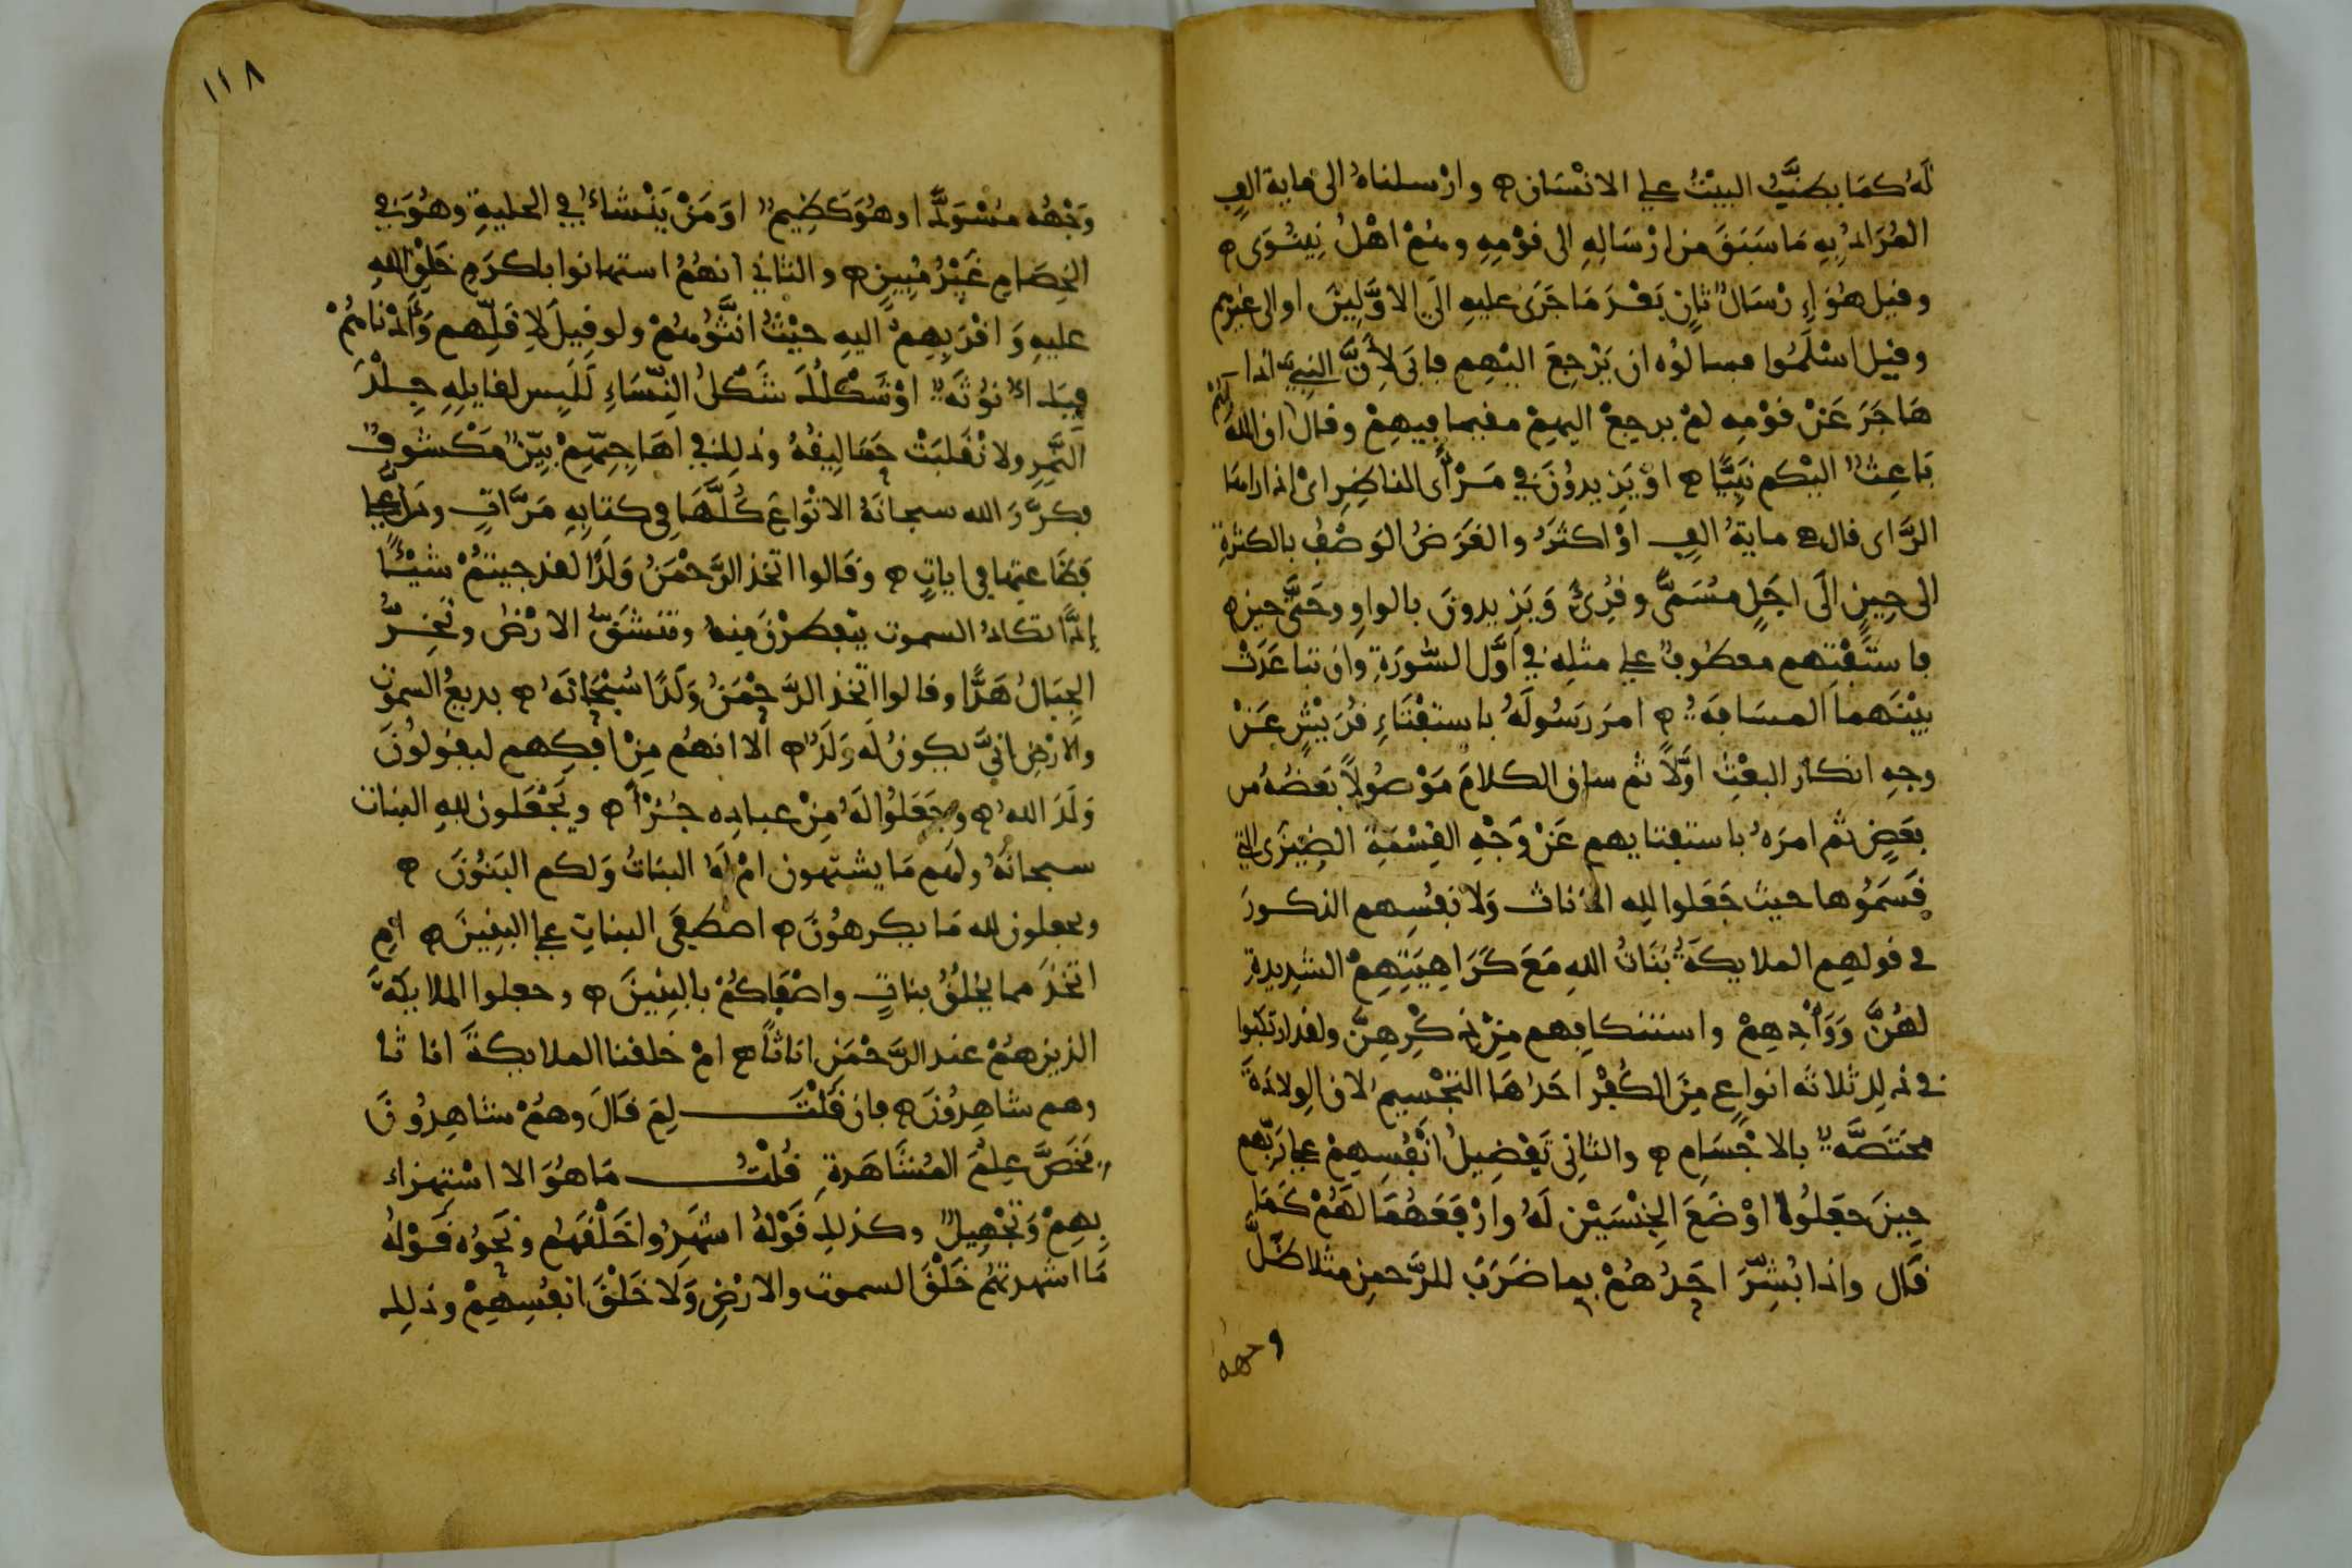 لَهُ كمَا يطنَّبُ البيْتُ علي الانْسَان وارْسلناهُ الى ماية الفٍ
المُرَادُ بِهِ مَا سَبَقَ من ارْسَالِهِ الى قوْمِهِ وهُمْ اهْلُ نِينَوَى
وقيل هُوَ اِرْسَالٌ ثانٍ بَعْدَ مَا جَرَى عليهِ الَى الاوَّلِينَ او الى غيْرِهم
وقيل اسْلَمُوا فسالوُه ان يَرْجِعَ اليْهِم فابَى لاَِنَّ النبِيَّ اذا
هَاجَرَ عَنْ قوْمِه لمْ يرجعْ اليهِمْ مقيما فِيهِمْ وقال ان اللهَ
بَاعِثٌ اليْكم نَبِيًّا اوْ يَزِيدُونَ في مَرْأَى الناظِرِ اىْ اذا راهَا
الرَّاى قال ماية الفٍ اوْ اكثَرُ والغَرَضُ الوَصْفُ بالكثرةِ
الى حِينٍ الَى اجَلٍ مُسَمًّى وقُرِئَ وَيَزِيدونَ بالواوِ وحَتَّى حينٍ
فاستَفْتِهِم معطُوفٌ علي مثلِهِ في اوَّلِ السُّورَةِ وان تباعَدَتْ
بيْنَهما المسَافَةُ امرَ رَسُولَهُ باستفْتَاءِ قُرَيْشٍ عَنْ
وجهِ انكار البعْثِ اوَّلاً ثم ساق الكلامَ مَوْصُولاً بَعضُهُ من
بعَضٍ ثم امرَهُ باستفتايهم عَنْ وَجْهِ القِسْمَةِ الضِيزَى التي
قَسَمُوها حيث جَعَلوا للِه الاناث وَلانفُسِهم الذكورَ
في قولهِم الملايكَةُ بَنَاتُ اللهِ مَعَ كَرَاهِيَتِهِمْ الشديدةِ
لهُنَّ وَوَأْدِهِمْ واستنكافِهم مِنْ ذِكْرِهِنَّ ولقد ارتكبُوا
في ذلِك ثلاثه انواعٍ مِنَ الكُفْرِ احَدُهَا التجْسِيمُ لان الِولادَةَ
مختَصَّةٌ بالاجْسَامِ والثانِي تَفْضِيلُ انْفُسِهِمْ علي رَبِّهم
حِينَ جعَلُوا اوْضَعَ الجِنْسَيْنِ لَهُ وارْفَعَهُمَا لهُمْ كَمَا
قال واذا بُشِّرَ احَدُهُمْ بما ضَرَبَ للرَّحمن مثلا ظلَّ
وجهه
١١٨
وَجْهُه مسْوَدًّا وهُوَ كَظِيمٌ اوَمَنْ يَنْشَاءُ في الحليةِ وهُوَ في
الخِصَامِ غَيْرُ مُبِينٍ والثاني انهُمُ استهانوا باكرَمِ خَلْقِ اللهِ
عليهِ وَاقرَبِهِمْ اليهِ حيْثُ انَّثُوهُمْ ولو قِيلَ لاِقَلِّهم وَأَدْنَاهُمْ
فيكَ اُنوُثَةٌ اوْ شَكْلُكَ شَكْلُ النِّسَاءِ لَلَبِس لقايلِهِ جِلْدَ
النَّمِرِ ولانْقَلَبَتْ حَمَالِيقُهُ وذلِك في اهَاجِيّهِمْ بيِّنٌ مَكْشوفٌ
فكرَّرَ الله سبحانَهُ الانْوَاعَ كُلَّهَا في كتابِهِ مَرَّاتٍ ودَلَّ علي
فظَاعتِها في اياتٍ وَقَالوا اتخذ الرَّحْمَنُ وَلَدًا لقد جيتمُ شيْئًا
اِدًّا تكادُ السموت يتْفطرْنَ مِنهُ وتنشَقُّ الارْضُ وتخِرُّ
الجِبَالُ هَدًّا وقالوا اتخذ الرَّحْمَنُ وَلَدًا سُبْحَانَهُ بديعُ السموت
والارْضِ انَّي يكون لَهُ وَلَدٌ الا انهُم مِنْ افكِهم ليقولُونَ
وَلَدَ اللهُ وجَعَلُوا لَهُ مِنْ عبادِه جُزْأً ويَجْعَلون للهِ البنات
سبحانَهُ ولهم مَا يشتهون امْ لَهُ البنَاتُ وَلكم البَنُونَ
ويجعلون لله مَا يكرهُونَ اصطفَى البناتِ علي البنِينَ امِ
اتخَذَ مما يخلُقُ بناتٍ واصْفَاكُمْ بالبنِينَ وجعلوا الملايكَةَ
الذين هُمْ عند الرَّحْمَنِ اناثًا امْ خلقنا الملايكةَ اناثا
وهم شاهِدُونَ فان قَلْتَ لِمَ قَالَ وهُمْ شاهِدُونَ
فخَصَّ عِلْمَ المُشَاهَدةِ قُلْتُ مَا هُوَ الا اسْتِهزاء
بِهِمْ وَتجْهِيلٌ وكذلِكَ قَوْلهُ اشهِدُوا خَلْقَهُم ونَحْوُه قَوْلهُ
مَا اشهدتهُم خَلْقَ السموت والارْضِ وَلاَ خَلْقَ انفُسِهِمْ وذلِك